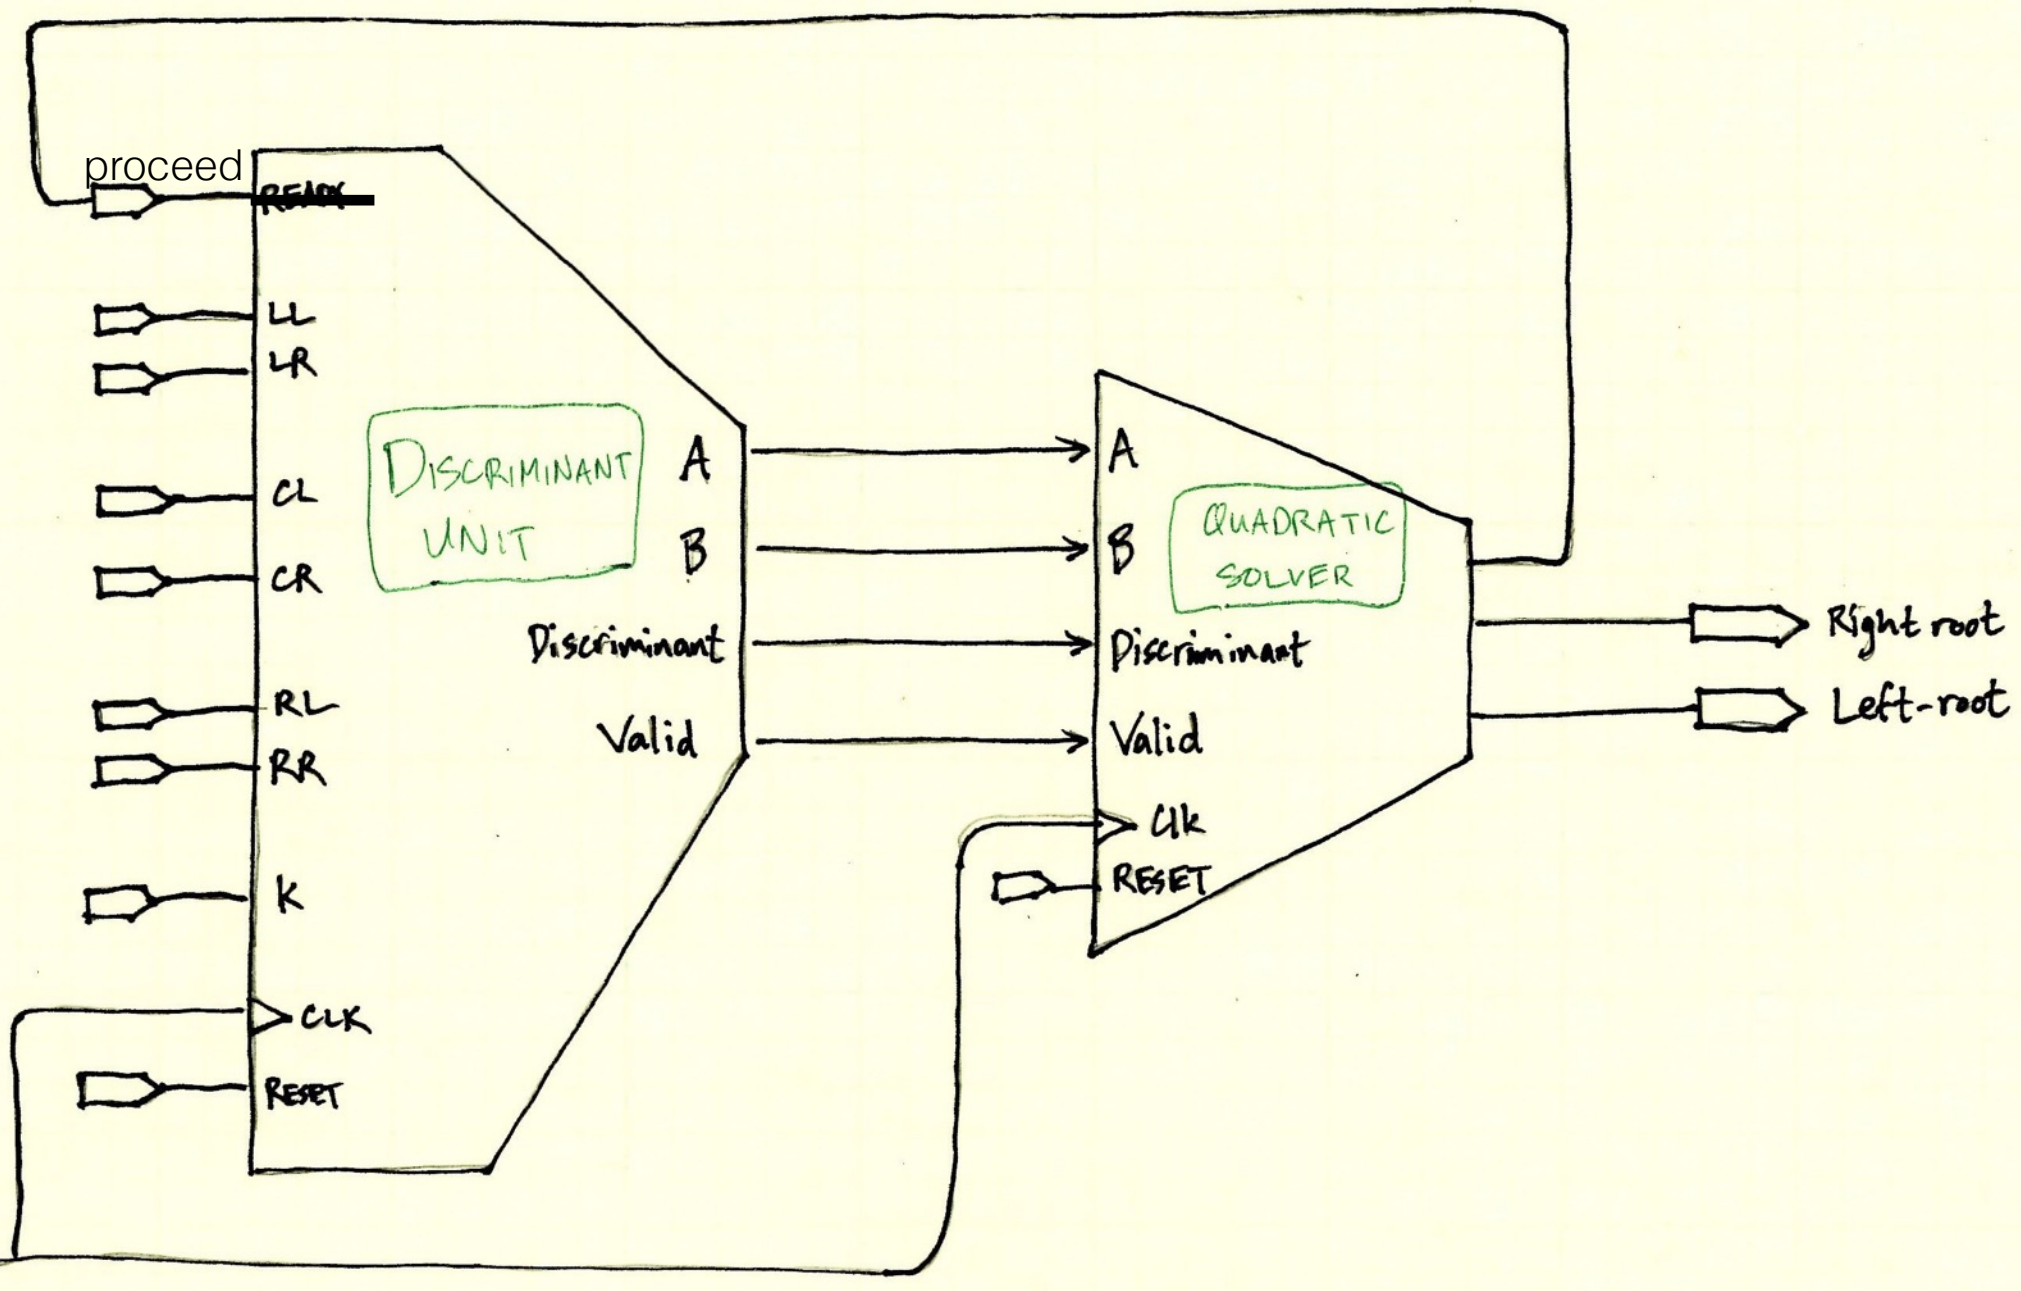 proceed
READY
LL
LR
CL
CR
RL
RR
K
CLK
RESET
DISCRIMINANT
UNIT
A
B
Discriminant
Valid
A
B
Discriminant
Valid
Clk
RESET
QUADRATIC
SOLVER
Right root
Left-root